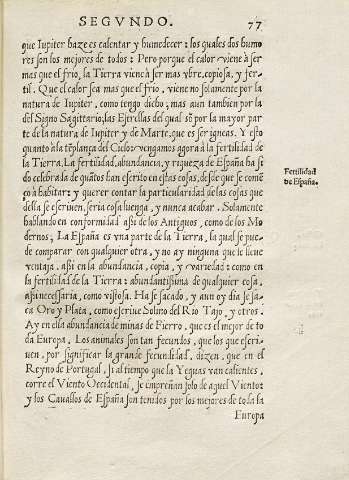 SEGVNDO. 77
que Iupiter haze es calentar y humedecer: los quales dos humo
res son los mejores de todos: Pero porque el calor viene à ser
mas que el frio, la Tierra viene à ser mas vbre, copiosa, y fer-
til. Que el calor sea mas que el frio, viene no solamente por la
natura de Iupiter, como tengo dicho, mas aun tambien por la
del Signo Sagittario, las Estrellas del qual sō por la mayor par
te de la natura de Iupiter y de Marte, que es ser igneas. Y esto
quanto à la tēplança del Cielo: vengamos agora à la fertilidad de
la Tierra. La fertilidad, abundancia, y riqueza de España ha si
do celebrada de quātos han escrito en estas cosas, desde que se comē
çò à habitar: y querer contar la particularidad de las cosas que
della se escriuen, seria cosa luenga, y nunca acabar. Solamente
hablando en conformidad assi de los Antiguos, como de los Mo
dernos; La España es vna parte de la Tierra, la qual se pue-
de comparar con qualquier otra, y no ay ninguna que le lleue
ventaja, assi en la abundancia, copia, y variedad: como en
la fertilidad de la Tierra: abundantissima de qualquier cosa,
assi necessaria, como vistosa. Ha se sacado, y aun oy dia se sa-
ca Oro y Plata, como escriue Solino del Rio Tajo, y otros.
Ay en ella abundancia de minas de Fierro, que es el mejor de to
da Europa. Los animales son tan fecundos, que los que escri-
uen, por significar la grande fecundidad, dizen, que en el
Reyno de Portugal, si al tiempo que la Yeguas van calientes,
corre el Viento Occidental, se empreñan solo de aquel Viento:
y los Cauallos de España son tenidos por los mejores de toda la
Europa
Fertilidad
de España.